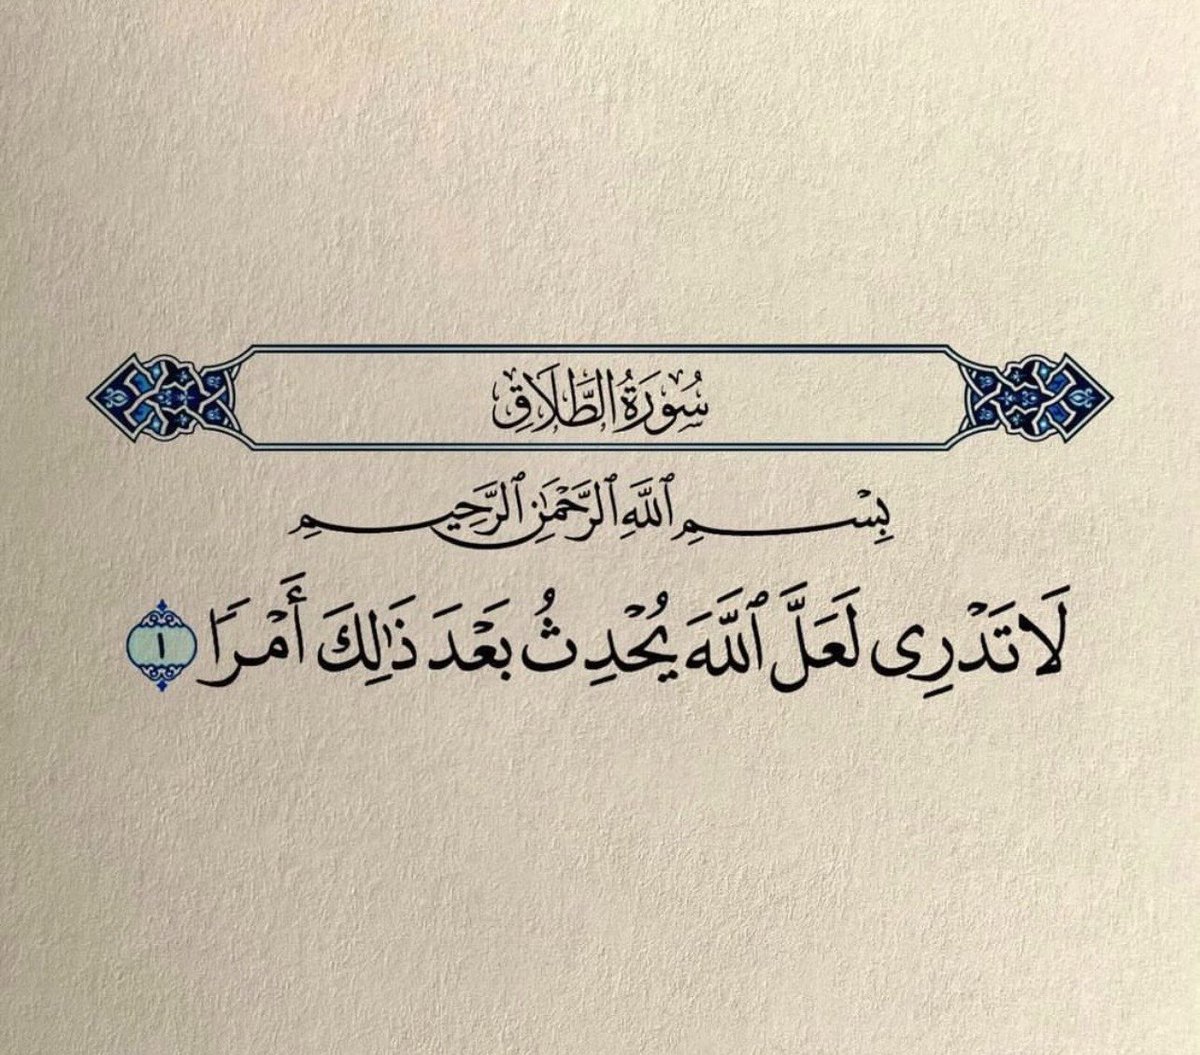 سُورَةُ الطَّلَاقِ
بِسْمِ ٱللَّهِ ٱلرَّحْمَٰنِ ٱلرَّحِيمِ
لَا تَدْرِى لَعَلَّ ٱللَّهَ يُحْدِثُ بَعْدَ ذَٰلِكَ أَمْرًا ١